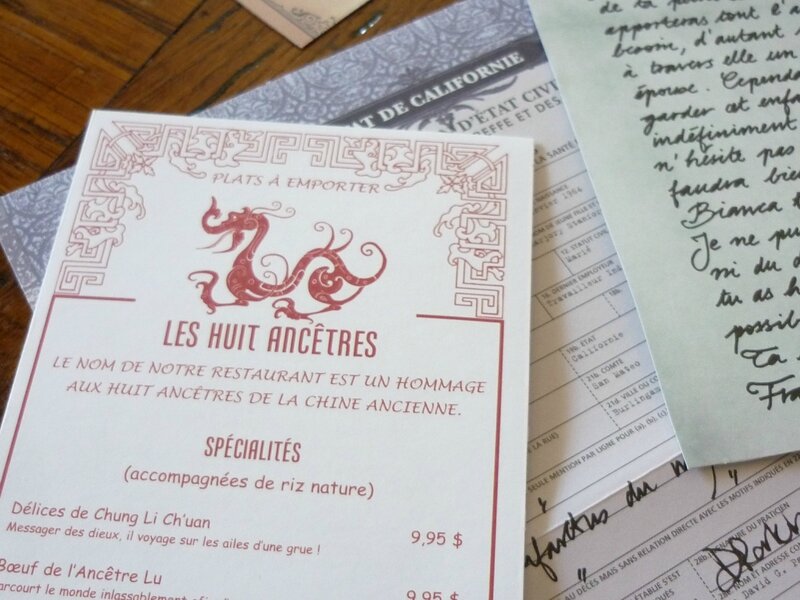 PLATS À EMPORTER
LES HUIT ANCÊTRES
LE NOM DE NOTRE RESTAURANT EST UN HOMMAGE
AUX HUIT ANCÊTRES DE LA CHINE ANCIENNE.
SPÉCIALITÉS
(accompagnées de riz nature)
Délices de Chung Li Ch'uan 9,95 $
Messager des dieux, il voyage sur les ailes d'une grue !
Bœuf de l'Ancêtre Lu 9,95 $
parcourt le monde inlassablement
DE CALIFORNIE
D'ÉTAT CIV
EFFE ET DES
LA SANTÉ
NAISSANCE
1964
12. STATUT CIVIL
Marié
DERNIER EMPLOYEUR
Travailleur Ind
19b. ÉTAT
Californie
21b. COMTÉ
San Mateo
21d. VILLE OU CO
Burlingam
LA RUE)
SEULE MENTION PAR LIGNE POUR (a), (b), (c)
AU DÉCÈS MAIS SANS RELATION DIRECTE AVEC LES MOTIFS INDIQUÉS EN
DU PRATICIEN
NOM ET ADRESSE
David G.
de ta
apporteras tout l'a
besoin, d'autant
à travers elle un
épouse. Cependa
garder cet enfa
indéfiniment
n'hésite pas
faudra bie
Bianca
Je ne pu
ni du d
tu as h
possibl
Ta
Fra